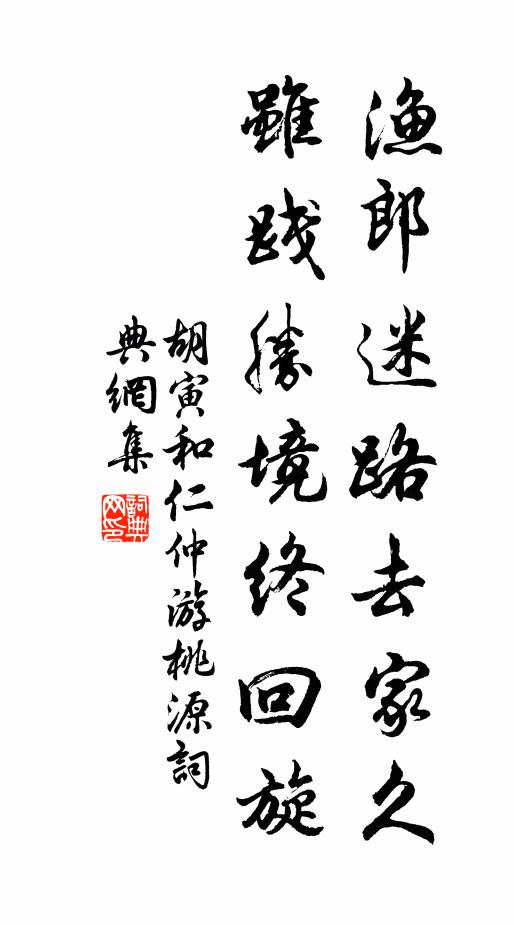 漁郎迷路去家久
雖践勝境終回旋
胡寅和仁仲游桃源詞
典網集
詞典网印